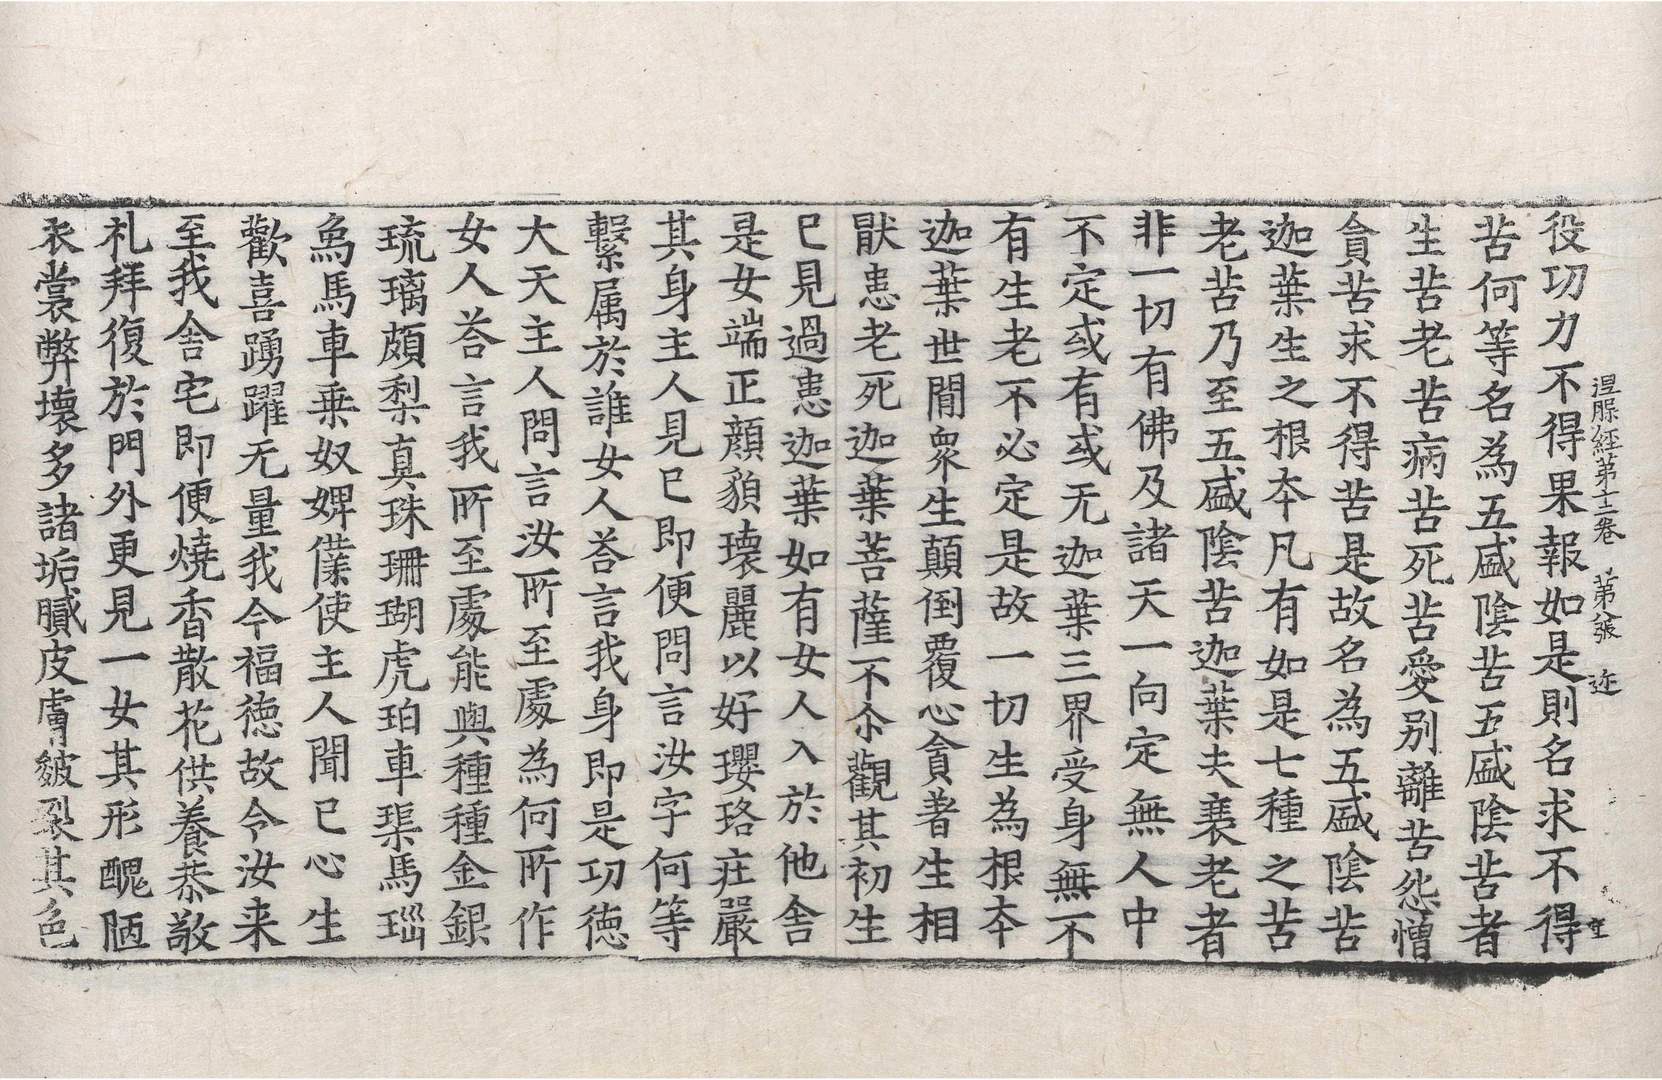 涅脲经苐十二卷 苐八張 迩
役功力不得果報如是則名求不得
苦何等名為五盛陰苦五盛陰苦者
生苦老苦病苦死苦愛別離苦怨憎
貪苦求不得苦是故名為五盛陰苦
迦葉生之根夲凡有如是七種之苦
老苦乃至五盛陰苦迦葉夫衰老者
非一切有佛及諸天一向定無人中
不定或有或无迦葉三界受身無不
有生老不必定是故一切生為根夲
迦葉世間衆生顛倒覆心貪著生相
猒患老死迦葉菩薩不尒觀其初生
已見過患迦葉如有女人入於他舍
是女端正顔貌瓌麗以好瓔珞庄嚴
其身主人見已即便問言汝字何等
繫属於誰女人荅言我身即是功徳
大天主人問言汝所至處為何所作
女人荅言我所至處能與種種金銀
琉璃頗梨真珠珊瑚虎珀車璖馬瑙
象馬車乗奴婢僕使主人聞已心生
歡喜踴躍无量我今福徳故令汝来
至我舍宅即便燒香散花供養恭敬
礼拜復於門外更見一女其形醜陋
衣裳弊壞多諸垢膩皮膚皴裂其色